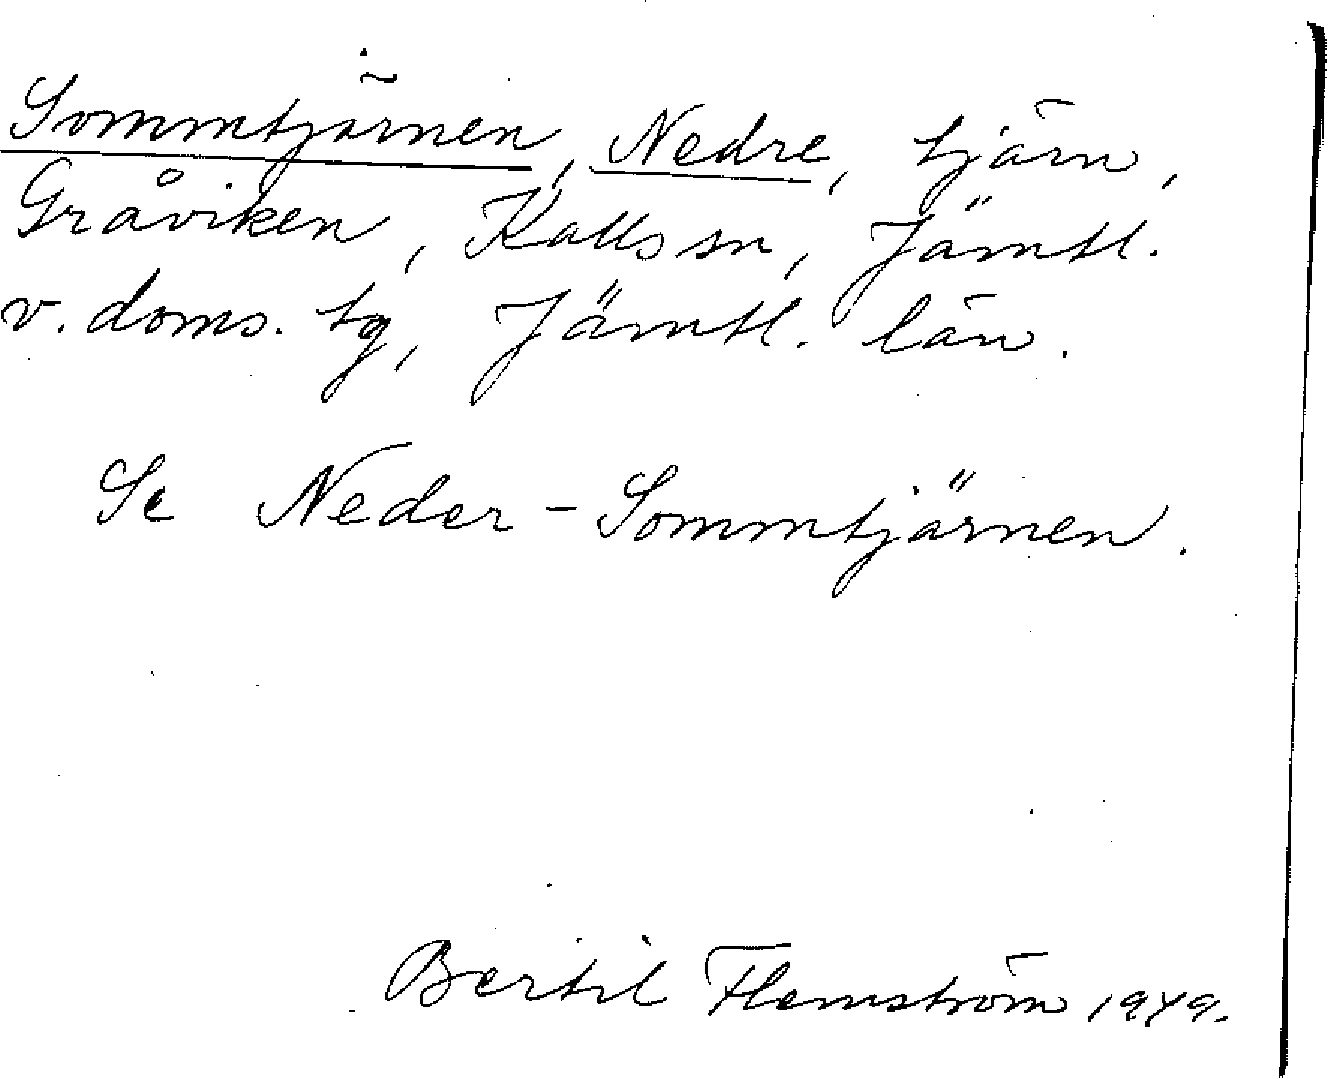 Sommtjärnen, Nedre, tjärn,
Gråviken, Kalls sn, Jämtl.
v. doms. tg, Jämtl. län.
Se Neder-Sommtjärnen.
Bertil Flemström 1949.